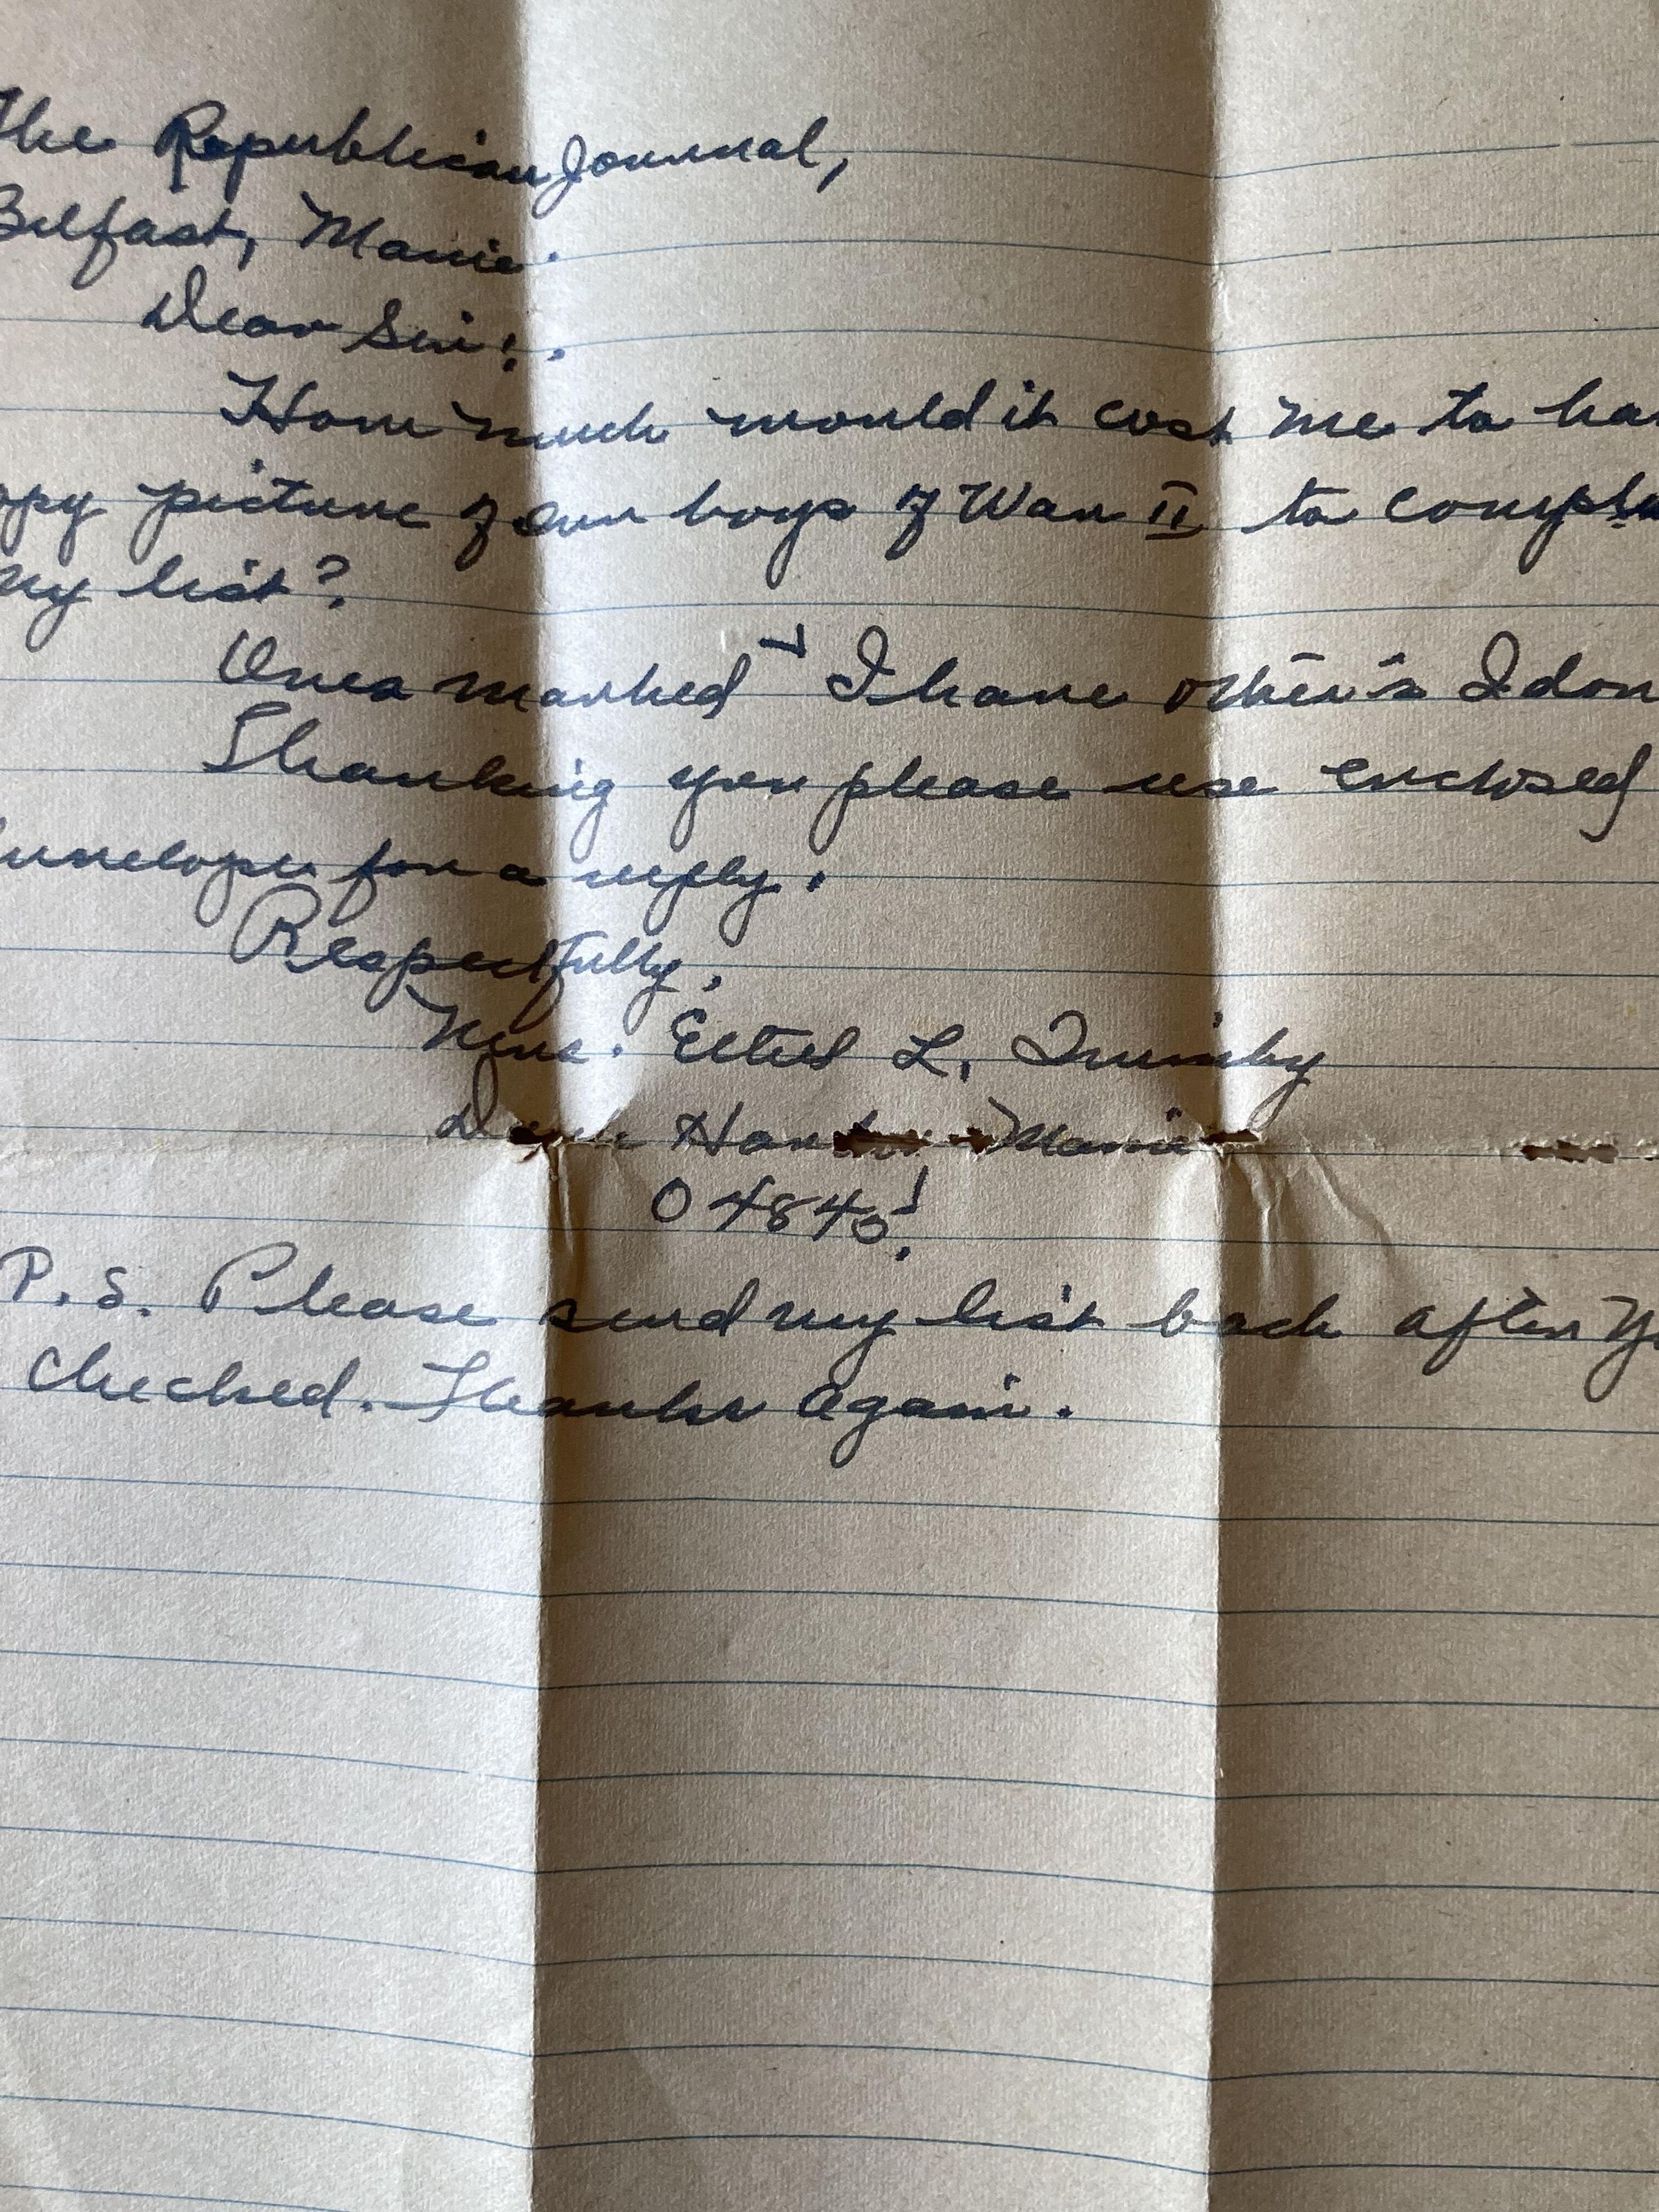 The Republican Journal,
Belfast, Maine.
Dear Sir:.
How much would it cost me to ha
opy picture of our boys of War II to comple
my list?
Ones marked ✓ I have other's I don
Thanking you please use enclosed
envelope for a reply.
Respectfully,
Mrs. Ethel L. Quimby
Maine
04840!
P.S. Please send my list back after yo
checked. Thanks again.